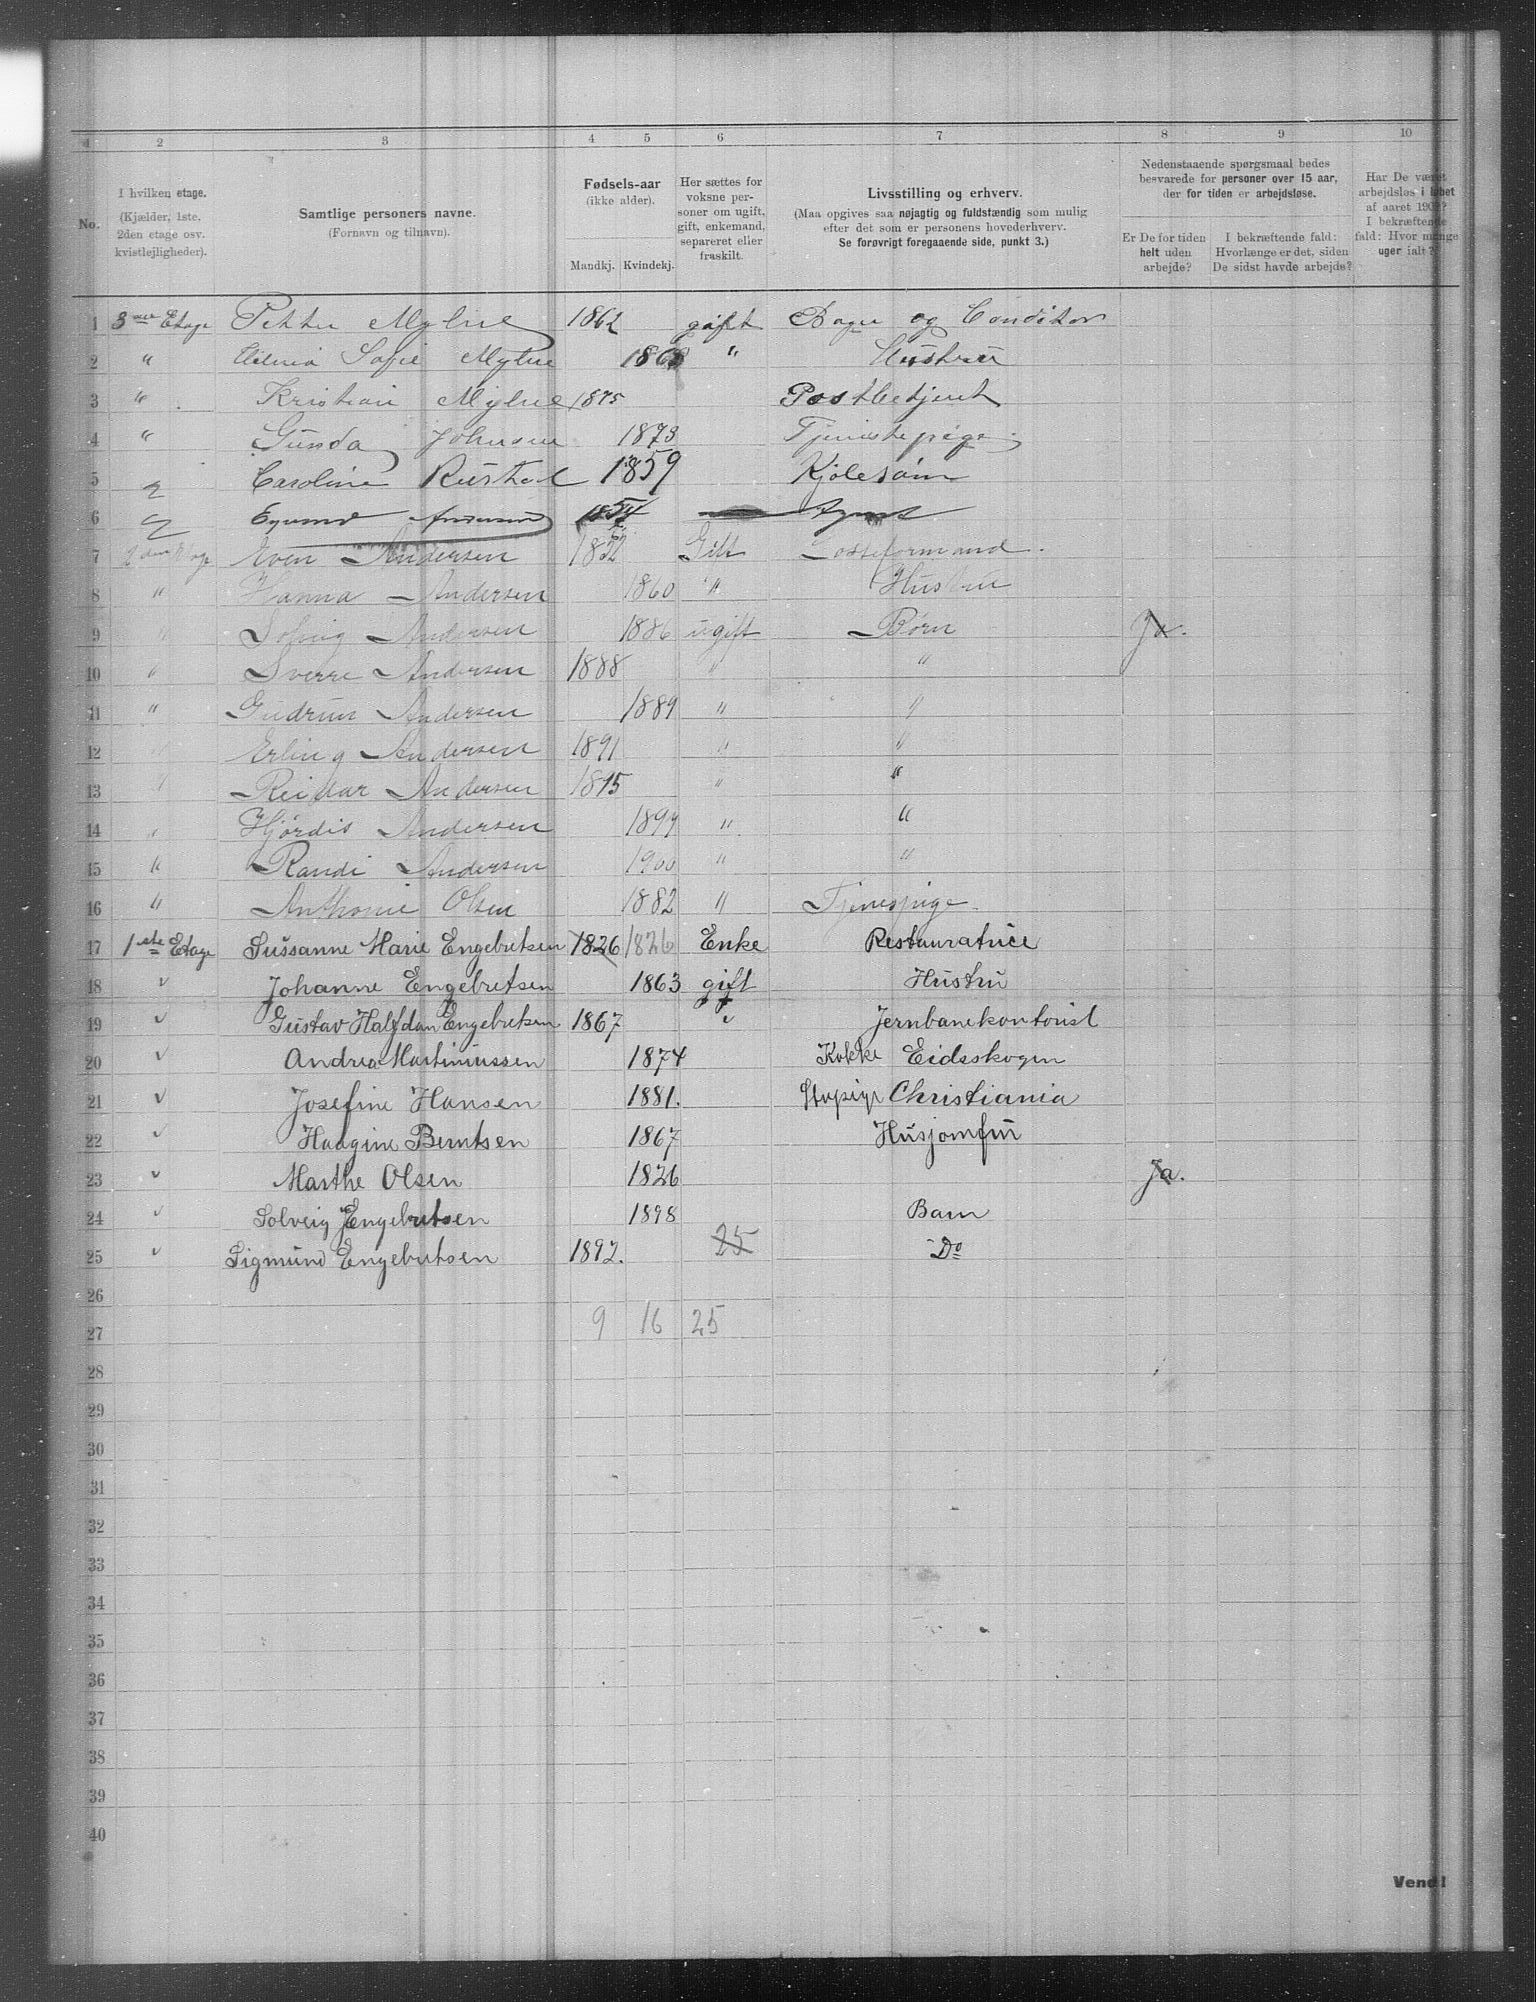 1 2 3 4 5 6 7 8 9 10
No.
I hvilken etage. (Kjælder, 1ste, 2den etage osv. kvistlejligheder).
Samtlige personers navne. (Fornavn og tilnavn).
Fødsels-aar (ikke alder).
Mandkj. Kvindekj.
Her sættes for voksne personer om ugift, gift, enkemand, separeret eller fraskilt.
Livsstilling og erhverv. (Maa opgives saa nøjagtig og fuldstændig som mulig efter det som er personens hovederhverv. Se forøvrigt foregaaende side, punkt 3.)
Nedenstaaende spørgsmaal bedes besvarede for personer over 15 aar, der for tiden er arbejdsløse.
Er De for tiden helt uden arbejde?
I bekræftende fald: Hvorlænge er det, siden De sidst havde arbejde?
Har De været arbejdsløs i løbet af aaret 1902? I bekræftende fald: Hvor mange uger ialt?
1 3 Etage Petter Myhre 1862 gift Bager og Conditor
2 " Sofie Myhre 1868 " Hustru
3 " Kristian Myhre 1875 Postbetjent
4 " Gunda Johnsen 1873 Tjenestepige
5 Caroline Rustad 1859 Kjolesøm
6 Andersen Agent
7 Even Andersen 1852 Gift Losseformand.
8 " Hanna Andersen 1860 " Hustru
9 " Solvig Andersen 1886 ugift Børn Ja.
10 " Sverre Andersen 1888 " "
11 " Gudrun Andersen 1889 " "
12 " Erling Andersen 1891 " "
13 " Reidar Andersen 1895 " "
14 " Hjørdis Andersen 1897 " "
15 " Randi Andersen 1900 " "
16 " Anthonie Olsen 1882 " Tjenespige
17 1ste Etage Sussanne Marie Engebretsen 1826 1826 Enke Restauratrice
18 " Johanne Engebretsen 1863 gift Hustru
19 " Gustav Halfdan Engebretsen 1867 " Jernbanekontorist
20 " Andrea Martiniussen 1874 Kokke Eidsskogen
21 " Josefine Hansen 1881. Stupige Christiania
22 " Haagine Berntsen 1867 Husjomfru
23 " Marthe Olsen 1826 Ja.
24 " Solveig Engebretsen 1898 Barn
25 " Sigmund Engebretsen 1892. 25 Do
26
27 9 16 25
28
29
30
31
32
33
34
35
36
37
38
39
40
Vend!